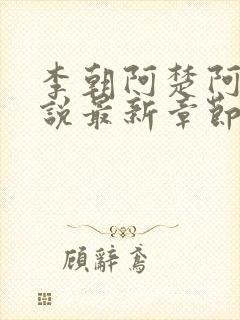 李朝阿楚阿
說最新章節
顧辭鳶